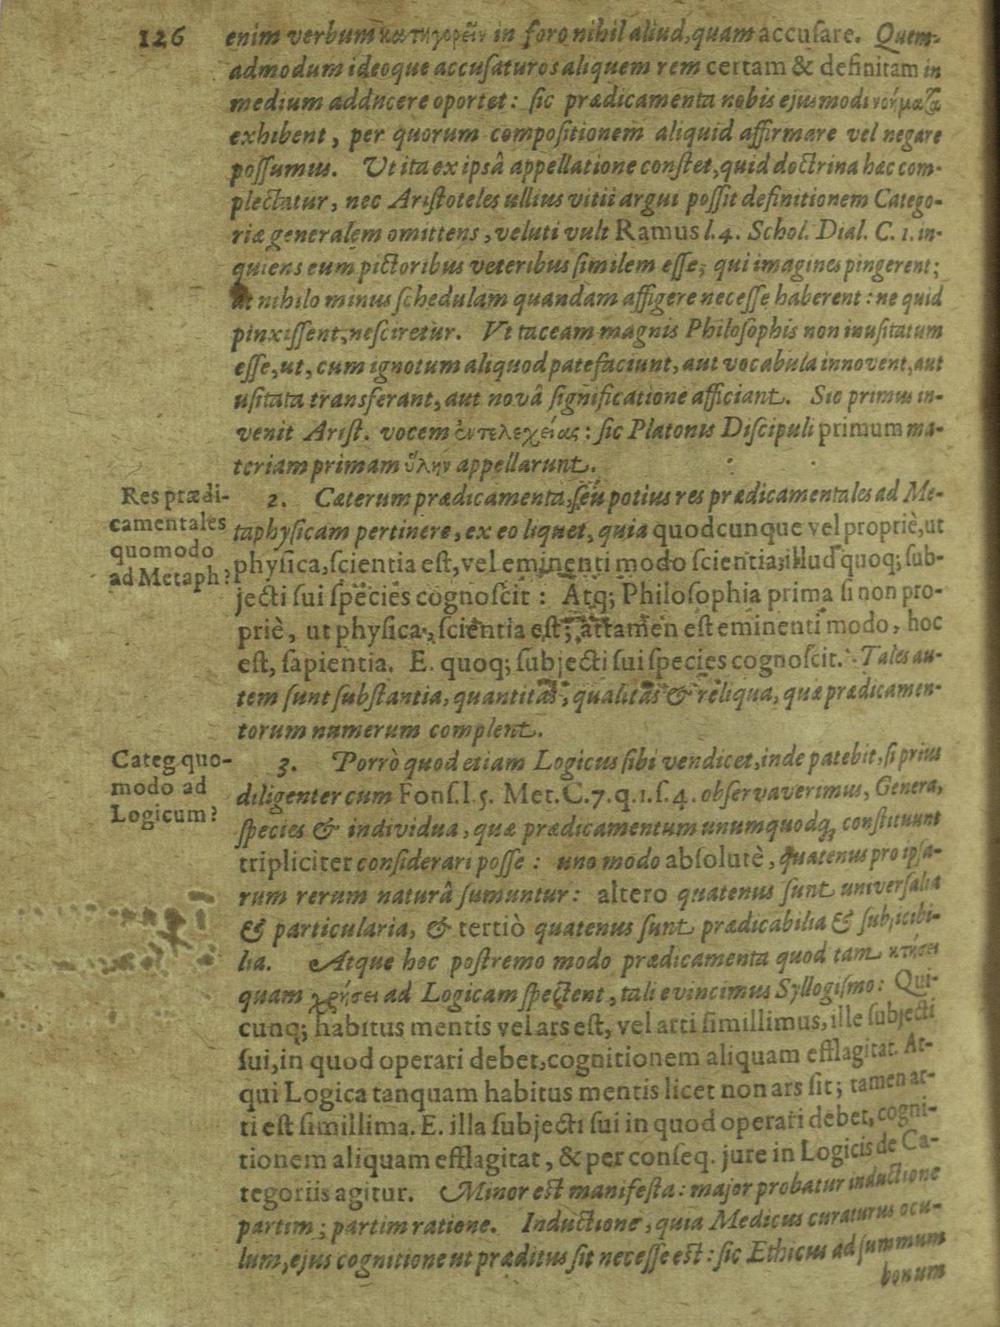 126
enim verbum κατηγορεῖν in foro nihil aliud, quam accuſare. Quem-
admodum ideoque accuſaturos aliquem rem certam & definitam in
medium adducere oportet: ſic prædicamenta nobis ejusmodi νοήματα
exhibent, per quorum compoſitionem aliquid affirmare vel negare
poſſumus. Ut ita ex ipsâ appellatione conſtet, quid doctrina hæc com-
plectatur, nec Ariſtoteles ullius vitii argui poſſit definitionem Catego-
riæ generalem omittens, veluti vult Ramus l. 4. Schol. Dial. C. 1. in-
quiens eum pictoribus veteribus ſimilem eſſe, qui imagines pingerent;
at nihilo minus ſchedulam quandam affigere neceſſe haberent: ne quid
pinxiſſent, neſciretur. Ut taceam magnis Philoſophis non inuſitatum
eſſe, ut, cum ignotum aliquod patefaciunt, aut vocabula innovent, aut
uſitata transferant, aut novâ ſignificatione afficiant. Sic primus in-
venit Ariſt. vocem ἐντελεχείας: ſic Platonis Diſcipuli primum ma-
teriam primam ὕλην appellarunt.
Res prædi-
camentales
quomodo
ad Metaph?
2. Cæterum prædicamenta, ſeu potius res prædicamentales ad Me-
taphyſicam pertinere, ex eo liquet, quia quodcunque vel propriè, ut
phyſica, ſcientia eſt, vel eminenti modo ſcientia, illud quoq; ſub-
jecti ſui ſpecies cognoſcit: Atq; Philoſophia prima ſi non pro-
priè, ut phyſica, ſcientia eſt; attamen eſt eminenti modo, hoc
eſt, ſapientia. E. quoq; ſubjecti ſui ſpecies cognoſcit. Tales au-
tem ſunt ſubſtantia, quantitas, qualitas & reliqua, quæ prædicamen-
torum numerum complent.
Categ quo-
modo ad
Logicum?
3. Porrò quod etiam Logicus ſibi vendicet, inde patebit, ſi prius
diligenter cum Fonſ. l. 5. Met. C. 7. q. 1. ſ. 4. obſervaverimus, Genera,
ſpecies & individua, quæ prædicamentum unumquodq; conſtituunt
tripliciter conſiderari poſſe: uno modo abſolutè, quatenus pro ipſa-
rum rerum naturâ ſumuntur: altero quatenus ſunt univerſalia
& particularia, & tertiò quatenus ſunt prædicabilia & ſubjicibi-
lia. Atque hoc poſtremo modo prædicamenta quod tam κτήσει
quam χρήσει ad Logicam ſpectent, tali evincimus Syllogiſmo: Qui-
cunq; habitus mentis vel ars eſt, vel arti ſimillimus, ille ſubjecti
ſui, in quod operari debet, cognitionem aliquam efflagitat. At-
qui Logica tanquam habitus mentis licet non ars ſit; tamen ar-
ti eſt ſimillima. E. illa ſubjecti ſui in quod operari debet, cogni-
tionem aliquam efflagitat, & per conſeq. jure in Logicis de Ca-
tegoriis agitur. Minor eſt manifeſta: major probatur inductione
partim; partim ratione. Inductione, quia Medicus curaturus ocu-
lum, ejus cognitione ut præditus ſit neceſſe eſt: ſic Ethicus ad ſummum
bonum